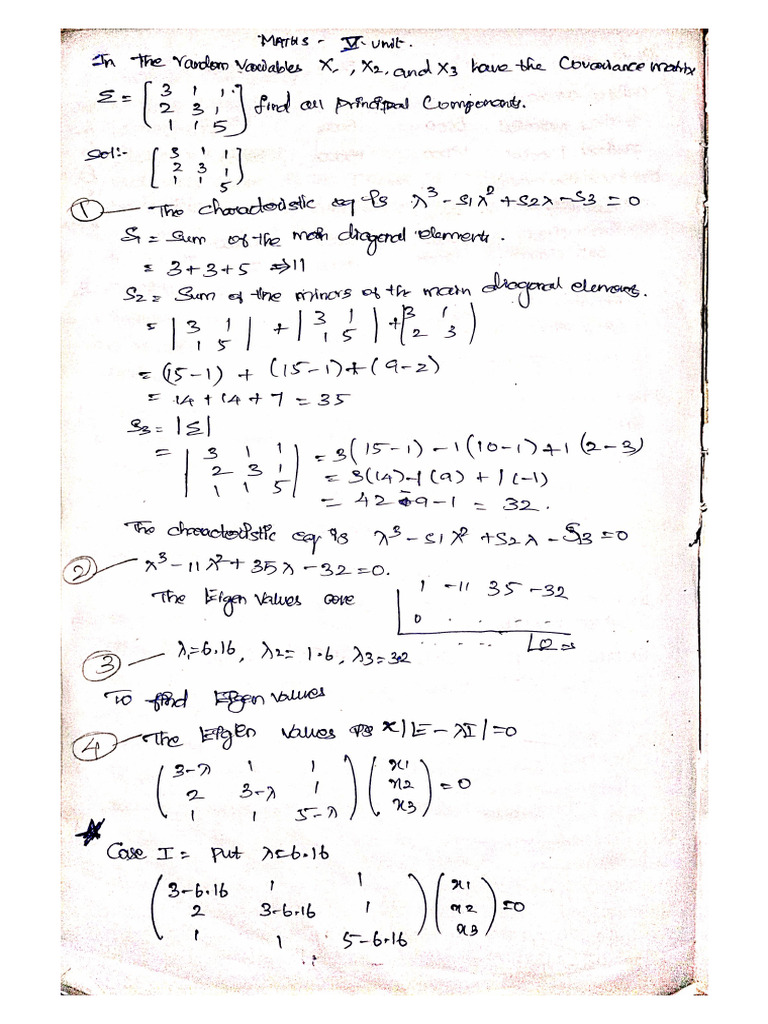 MATHS - V - unit.
In the random variables X1, X2, and X3 have the Covariance matrix
Σ = [ 3 1 1 ; 2 3 1 ; 1 1 5 ] find all principal Components.
Sol:- [ 3 1 1 ; 2 3 1 ; 1 1 5 ]
① — The characteristic eq is λ³ - S1λ² + S2λ - S3 = 0
S1 = Sum of the main diagonal elements.
= 3+3+5 ⇒ 11
S2 = Sum of the minors of the main diagonal elements.
= | 3 1 ; 1 5 | + | 3 1 ; 1 5 | + | 3 1 ; 2 3 |
= (15-1) + (15-1) + (9-2)
= 14 + 14 + 7 = 35
S3 = |Σ|
= | 3 1 1 ; 2 3 1 ; 1 1 5 | = 3(15-1) - 1(10-1) + 1(2-3)
= 3(14) - 1(9) + 1(-1)
= 42 - 9 - 1 = 32.
The characteristic eq is λ³ - S1λ² + S2λ - S3 = 0
② — λ³ - 11λ² + 35λ - 32 = 0.
The Eigen values are
1 -11 35 -32
0 . . - -
. . - - - | 0 =
③ — λ1 = 6.16, λ2 = 1.6, λ3 = 3.2
To find Eigen values
④ — The Eigen values is x|E - λI| = 0
( 3-λ 1 1 ; 2 3-λ 1 ; 1 1 5-λ ) ( x1 ; x2 ; x3 ) = 0
★
Case I = put λ = 6.16
( 3-6.16 1 1 ; 2 3-6.16 1 ; 1 1 5-6.16 ) ( x1 ; x2 ; x3 ) = 0